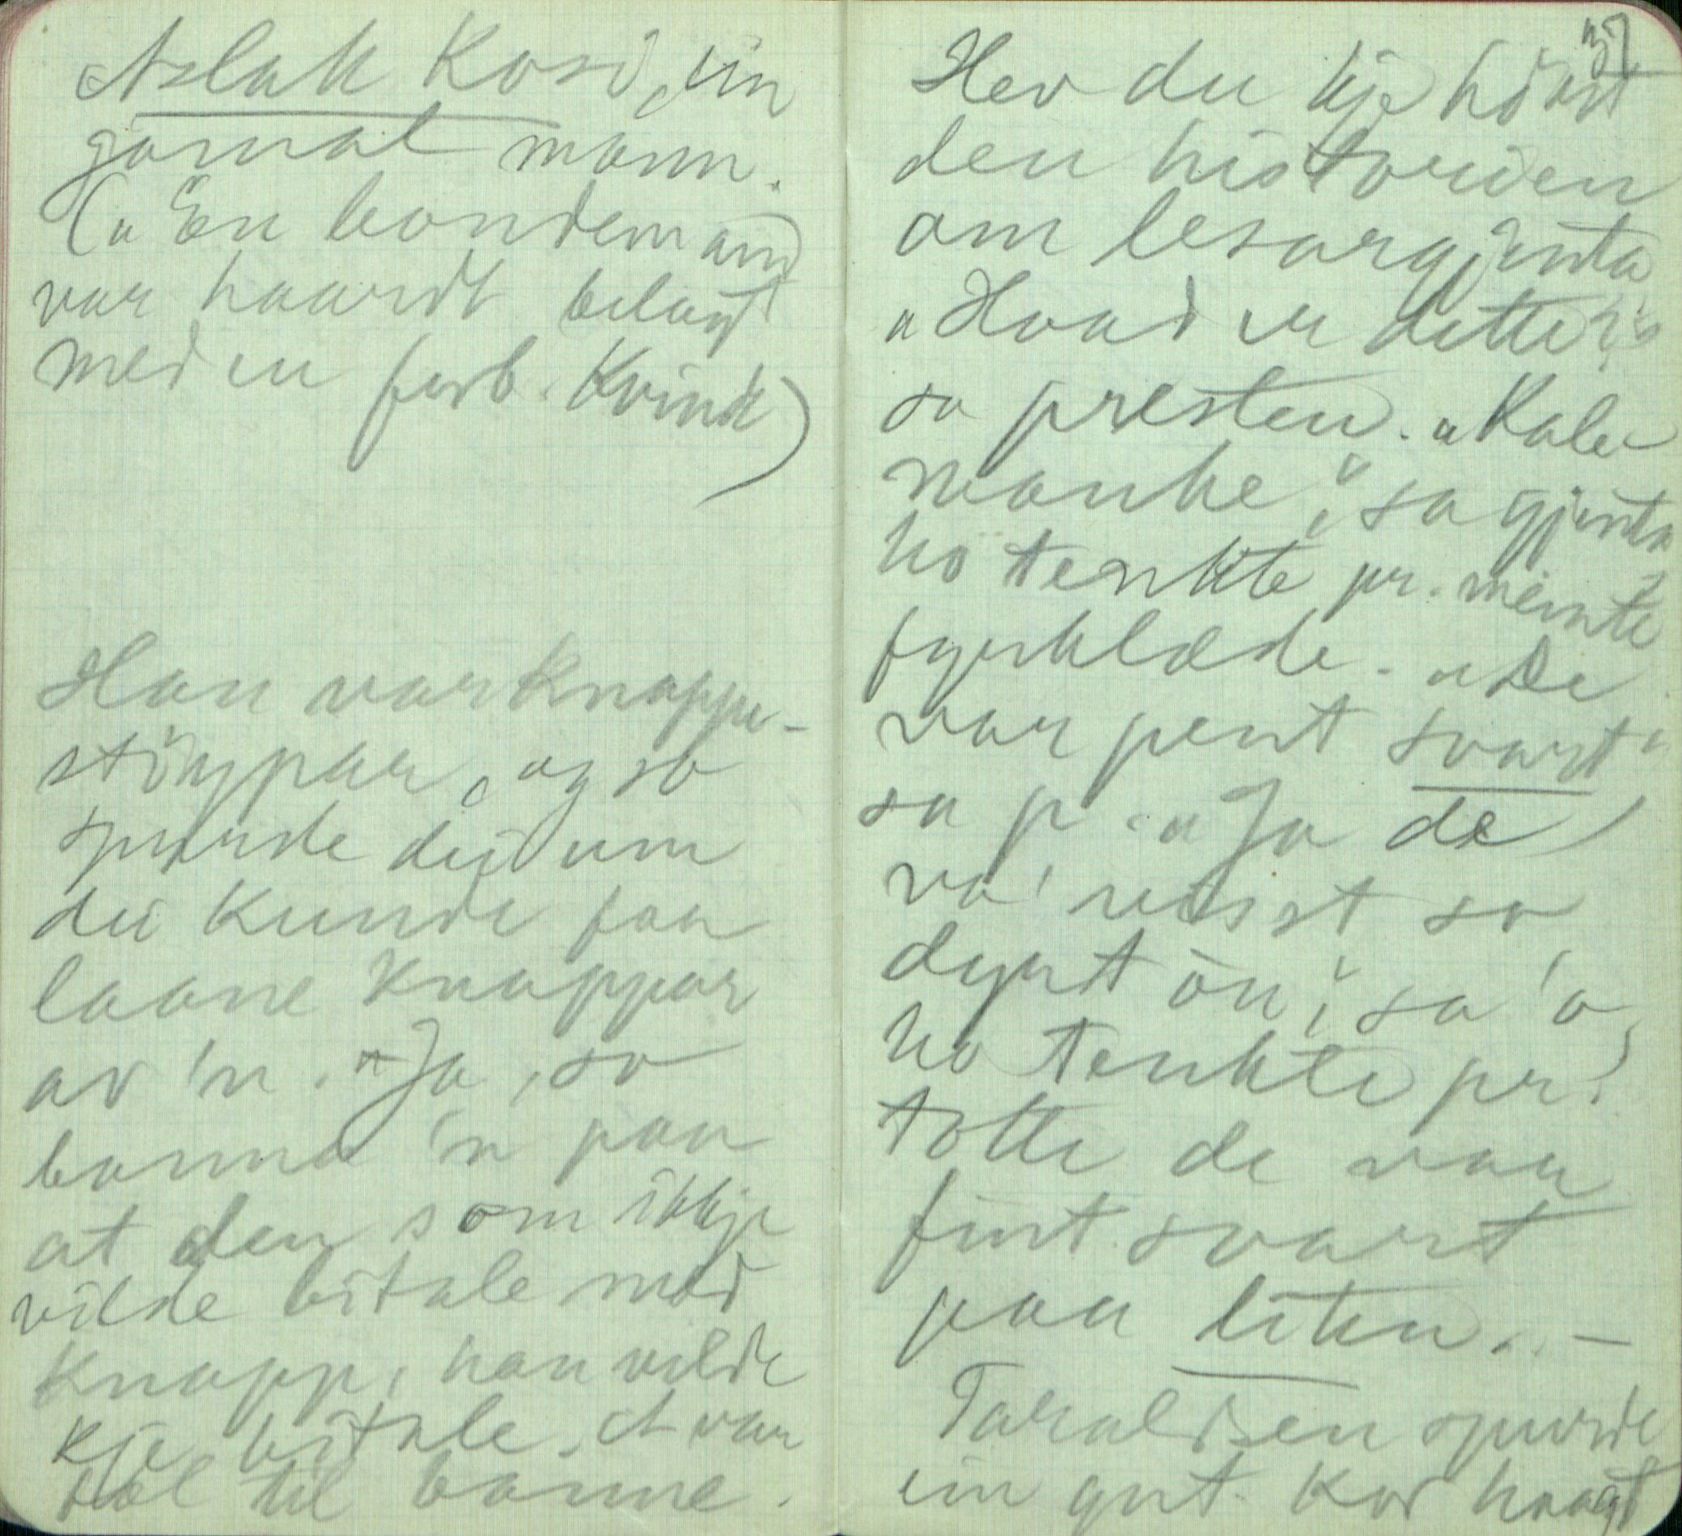 Aslak Kosi, ein
gamal mann.
(„En bondemand
var haardt belagt
med en forb. Kvinde)
Han var knappe-
stöypar, og so
spurde dei um
dei kunde faa
laane knappar
av 'n. „Ja, so
banna 'n paa
at den som ikkje
vilde bitale med
knapp, han vilde
kje bitale. et var
til banne.
Hev du kje höyrt
den historien
om lesargjenta
„Hvad er dette?"
sa presten. „Kale-
manke", sa gjenta
ho tenkte pr. meinte
fyrklæde. „De
var pent svart"
sa p. „Ja de
va' visst so
dyrt ön", sa 'o,
ho tenkte pr.
totte de var
fint svart
paa liten. —
Taraldsen spurde
ein gut kor haagt